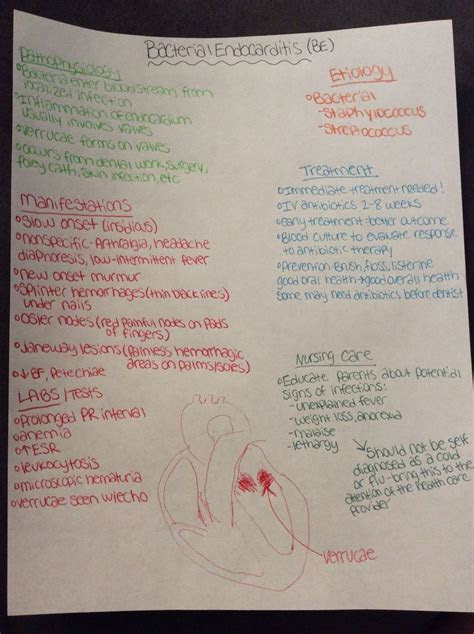 Bacterial Endocarditis (BE)
Pathophysiology
Bacteria enter bloodstream from
localized infection
Inflammation of endocardium
usually involves valves
verrucae forms on valves
occurs from dental work, surgery,
foley cath, skin infection, etc
Etiology
Bacterial
-Staphylococcus
-Streptococcus
Manifestations
Slow onset (insidious)
nonspecific-Arthralgia, headache
diaphoresis, low-intermittent fever
new onset murmur
Splinter hemorrhages (thin black lines)
under nails
osler nodes (red painful nodes on pads
of fingers)
Janeway lesions (painless hemorrhagic
areas on palms/soles)
Petechiae
Treatment
Immediate treatment needed!
IV antibiotics 2-8 weeks
early treatment-better outcome
Blood culture to evaluate response
to antibiotic therapy
Prevention-Brush, floss, listerine
good oral health→good overall health
some may need antibiotics before dentist
LABS/Tests
prolonged PR interval
anemia
↑ESR
leukocytosis
microscopic hematuria
verrucae seen w/echo
Nursing care
Educate parents about potential
signs of infections:
-unexplained fever
-weight loss, anorexia
-malaise
-lethargy
should not be self
diagnosed as a cold
or flu-bring this to the
attention of the health care
provider
verrucae